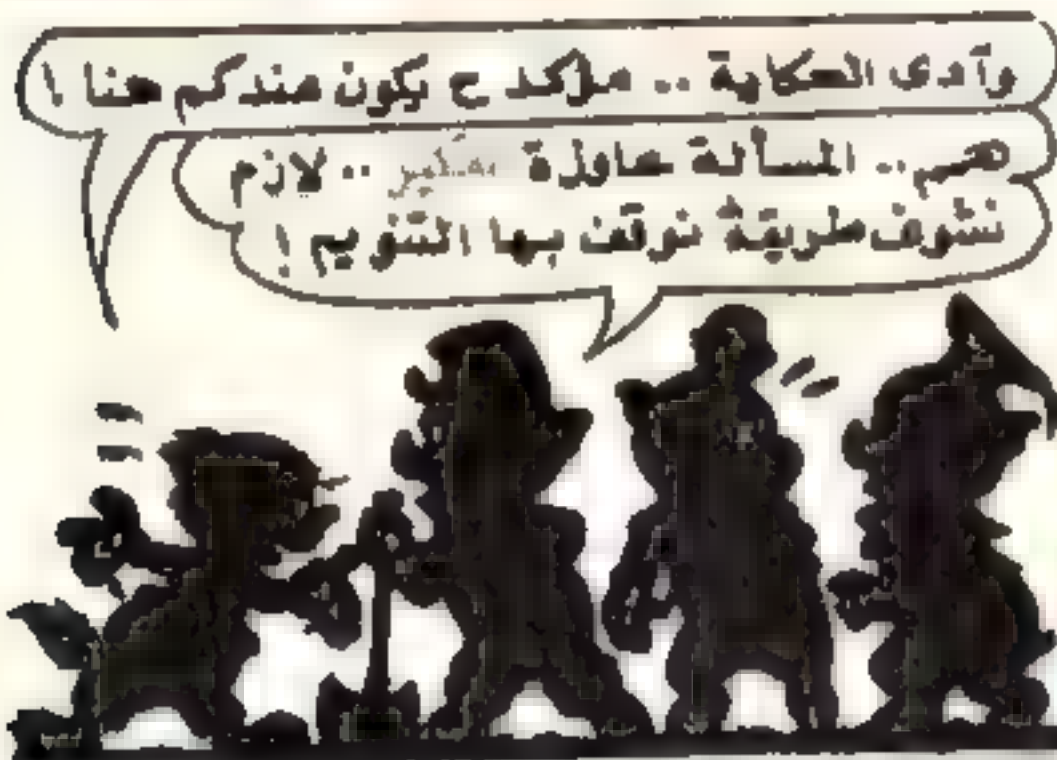 وآدى الحكاية .. ملاكد ح يكون عندكم هنا !
همم .. المسألة عاوزة تفكير .. لازم
نشوف طريقة نوقف بها التنويم !